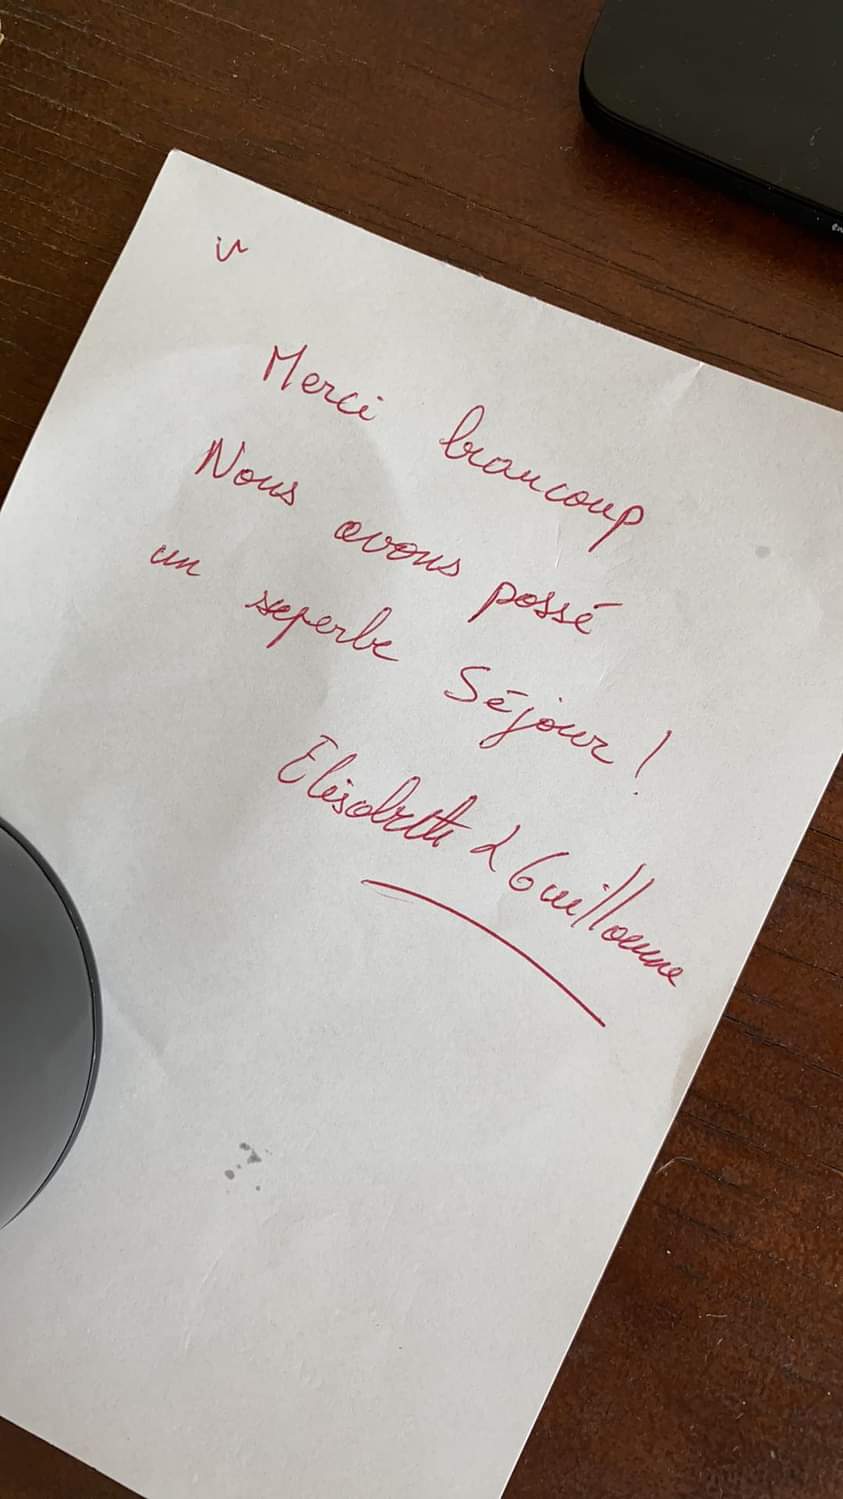 Merci beaucoup
Nous avons passé
un superbe Séjour !
Elisabeth & Guillaume